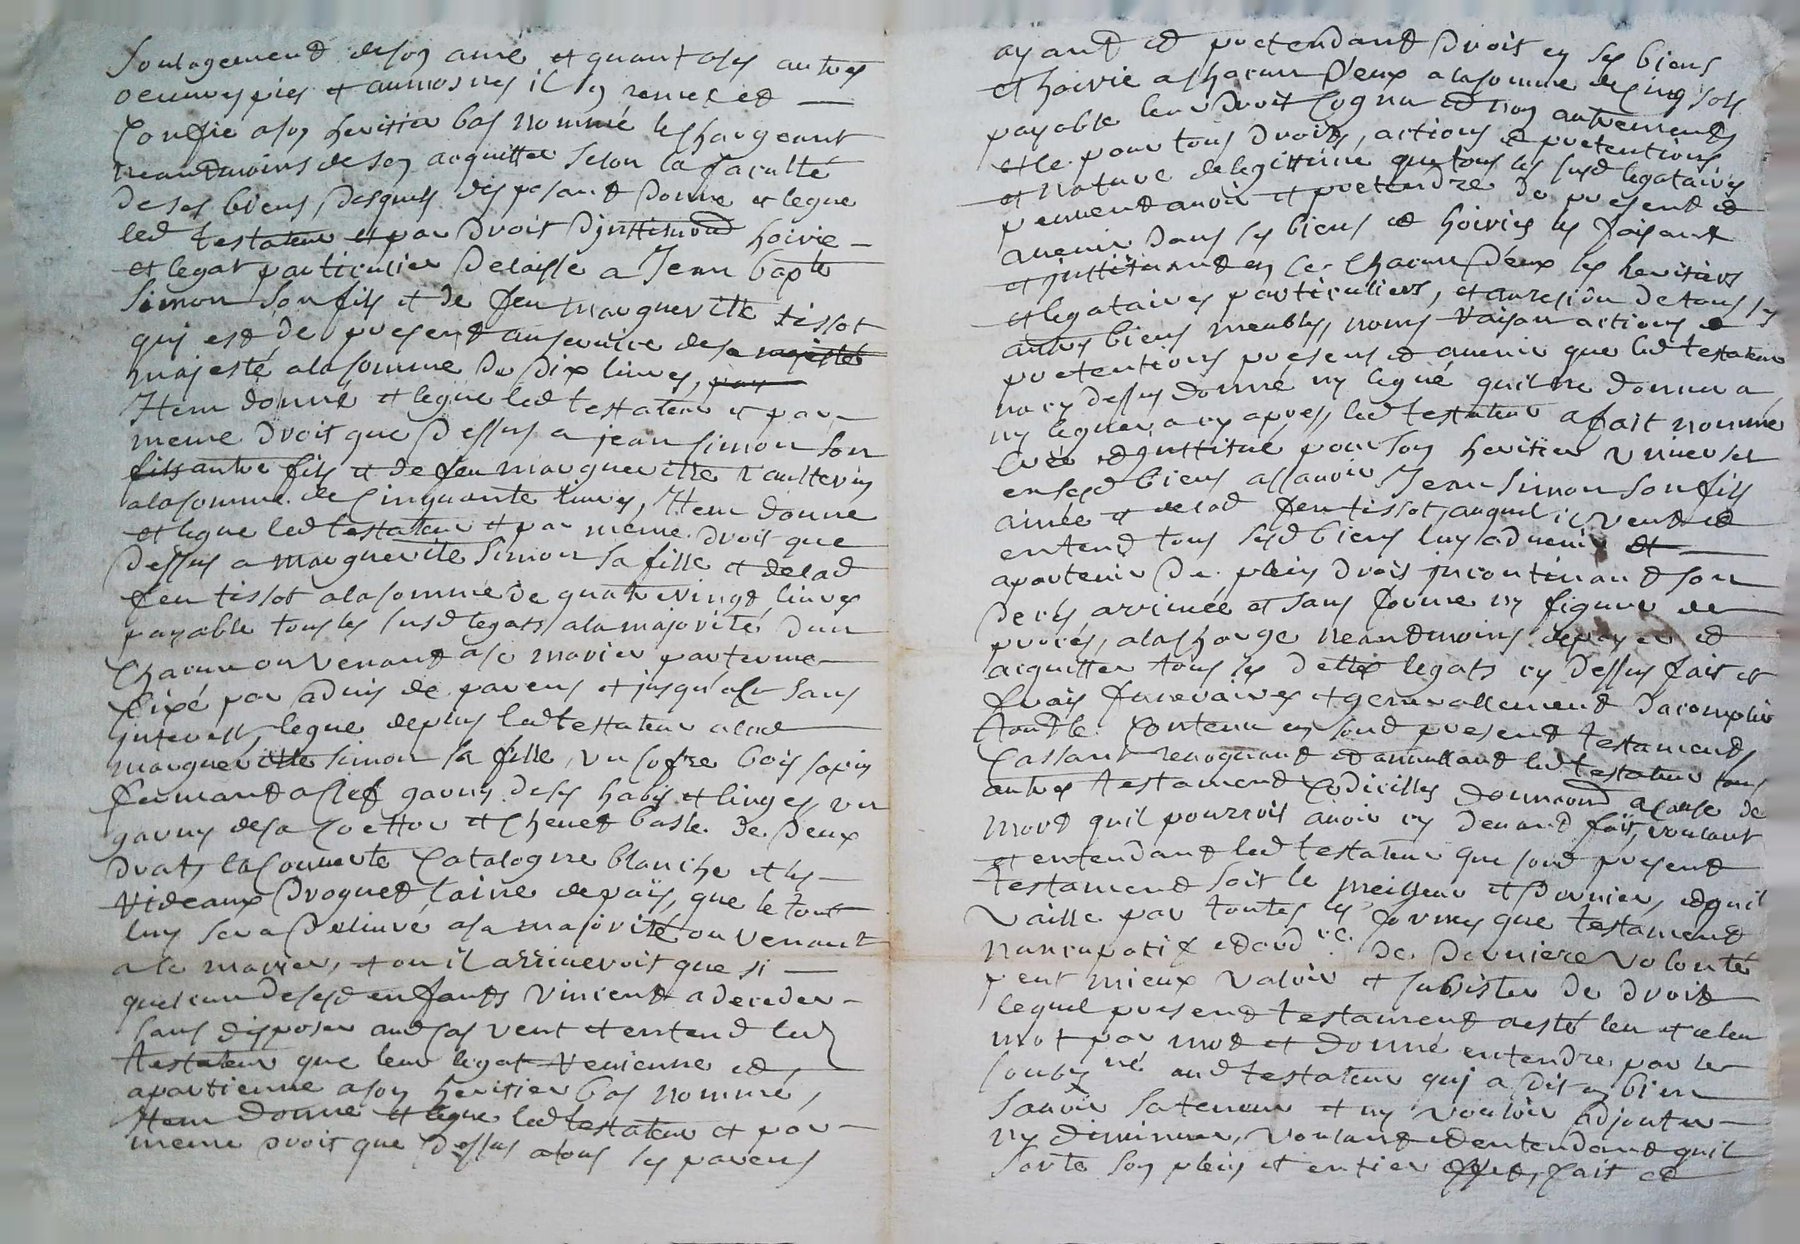 Soulagement de son ame et quant a ses autres
oeuvres pies et aumosnes il sen remet et
Confie a son heritier bas nommé le chargeant
neantmoins de sen acquitter selon la faculté
de ses biens, desquels disposant donne et legue
led testateur et par droit d'jnstitution hoirie
et legat particulier delaisse a Jean bapte
Simon son fils et de feu margueritte tissot
qui est de present au service de sa majesté
majesté a la somme de dix livres, pay
Item donne et legue led testateur et par
meme droit que dessus a jean simon son
fils autre fils et de feu margueritte
a la somme de Cinquante livres, Item donne
et legue led testateur et par meme droit que
dessus a marguerite Simon sa fille et de lad
feu tissot a la somme de quatre vingt livres
payable tous les susd legats a la majorité d'un
Chacun ou venant a se marier par terme
fixé par advis de parens et jusqu'alors sans
jnterest, legue de plus led testateur a lad
margueritte simon sa fille, un cofre bois sapin
fermant a clef garny de ses habis et linges, un
garny de sa coettre et chevet basle de deux
draps la couverte Catalogne blanche et les
rideaux droguet laine de pais, que le tout
luy sera delivré a sa majorité ou venant
a se marier, et ou il arriveroit que si
quelcun de sesd enfants vinient a deceder
sans disposer aud cas veut et entend led
testateur que leur legat revienne et
apartienne a son heritier bas nommé,
Item donne et legue led testateur et par
meme droit que dessus a tous ses parens
ayant et pretendant droit en ses biens
et hoirie a chacun d'eux a la somme de cinq sols
payable leur droit Cognu et non autrement
et ce pour tous droits, actions et pretentions
et nature de legittime que tous les susd legataires
peuvent avoir et pretendre de present et
avenir dans ses biens et hoiries les faisant
et jnstituant en ce Chacun d'eux ses heritiers
et legataires particuliers, et au residu de tous ses
autres biens meubles, noms raison actions et
pretentions presens et avenir que led testateur
na cy dessus donné ny legué quil ne donnera
ny leguera cy apres, led testateur a fait nommé
Creé et jnstitué pour son heritier universel
en sesd biens assavoir Jean Simon son fils
ainée et de lad feu tissot, auquel il veut et
entend tous sesd biens luy advenir et
apartenir de plein droit jncontinant son
deces arrivée et sans forme ny figure de
procés, a la charge neantmoins de payer et
acquitter tous ses dettes legats cy dessus fait et
frais funeraires et generallement d'acomplir
tout le Contenu en sond present testament
Cassant revoquant et annullant led testateur tous
autres testament Codicilles donnaond a cause de
mort quil pourroit avoir cy devant fait, voulant
et entendant led testateur que sond present
testament soit le meilleur et dernier, et quil
vaille par toutes les formes que testament
nuncupatif et ord re de derniere volonté
peut mieux valoir et subsister de droit
lequel present testament a esté leu et releu
mot par mot et donné entendre par le
soubz né aud testateur qui a dit en bien
savoir sa teneur et ny vouloir adjouter
ny diminuer, voulant et entendant quil
sorte son plein et entier effet, fait et